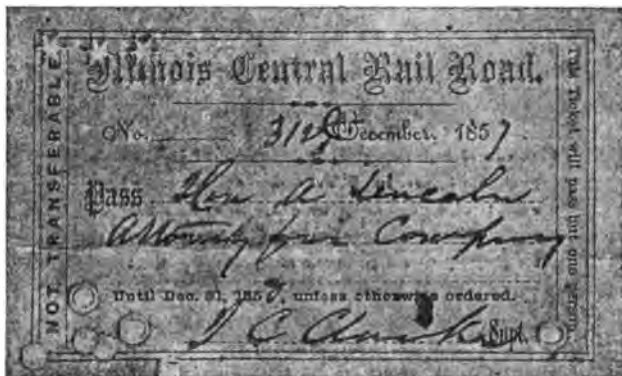 Illinois Central Rail Road.
No. 31st December. 1857.
Pass Hon A Lincoln
Attorney for Company
Until Dec. 31, 185 , unless otherwise ordered.
J C Clarke Supt.
NOT TRANSFERABLE
This Ticket will pass but one person